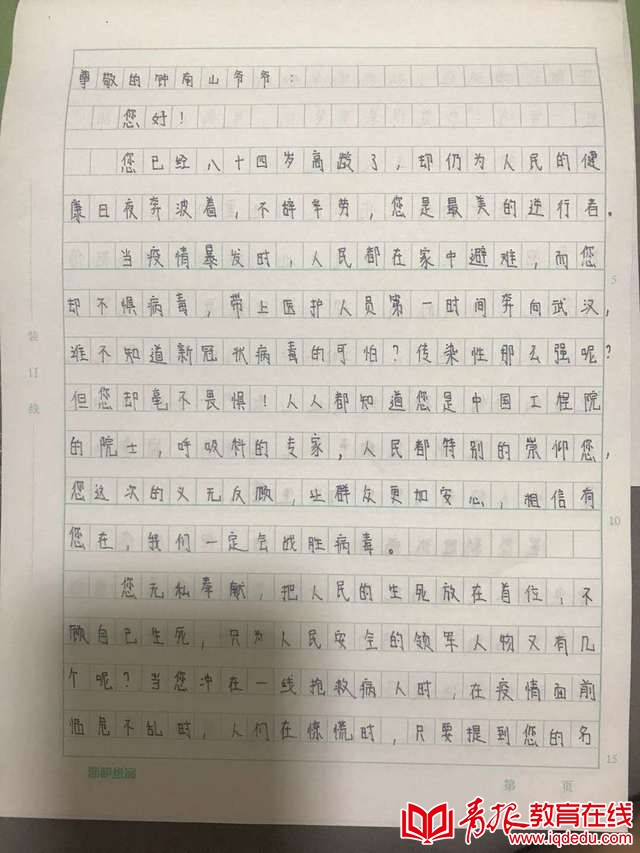 尊敬的钟南山爷爷：
您好！
您已经八十四岁高龄了，却仍为人民的健
康日夜奔波着，不辞辛劳，您是最美的逆行者。
当疫情暴发时，人民都在家中避难，而您
却不惧病毒，带上医护人员第一时间奔向武汉，
谁不知道新冠状病毒的可怕？传染性那么强呢？
但您却毫不畏惧！人人都知道您是中国工程院
的院士，呼吸科的专家，人民都特别的崇仰您，
您这次的义无反顾，让群众更加安心，相信有
您在，我们一定会战胜病毒。
您无私奉献，把人民的生死放在首位，不
顾自己生死，只为人民安全的领军人物又有几
个呢？当您冲在一线抢救病人时，在疫情面前
临危不乱时，人们在惊慌时，只要提到您的名
5
10
15
装
订
线
第 页
青报教育在线
www.iqdedu.com